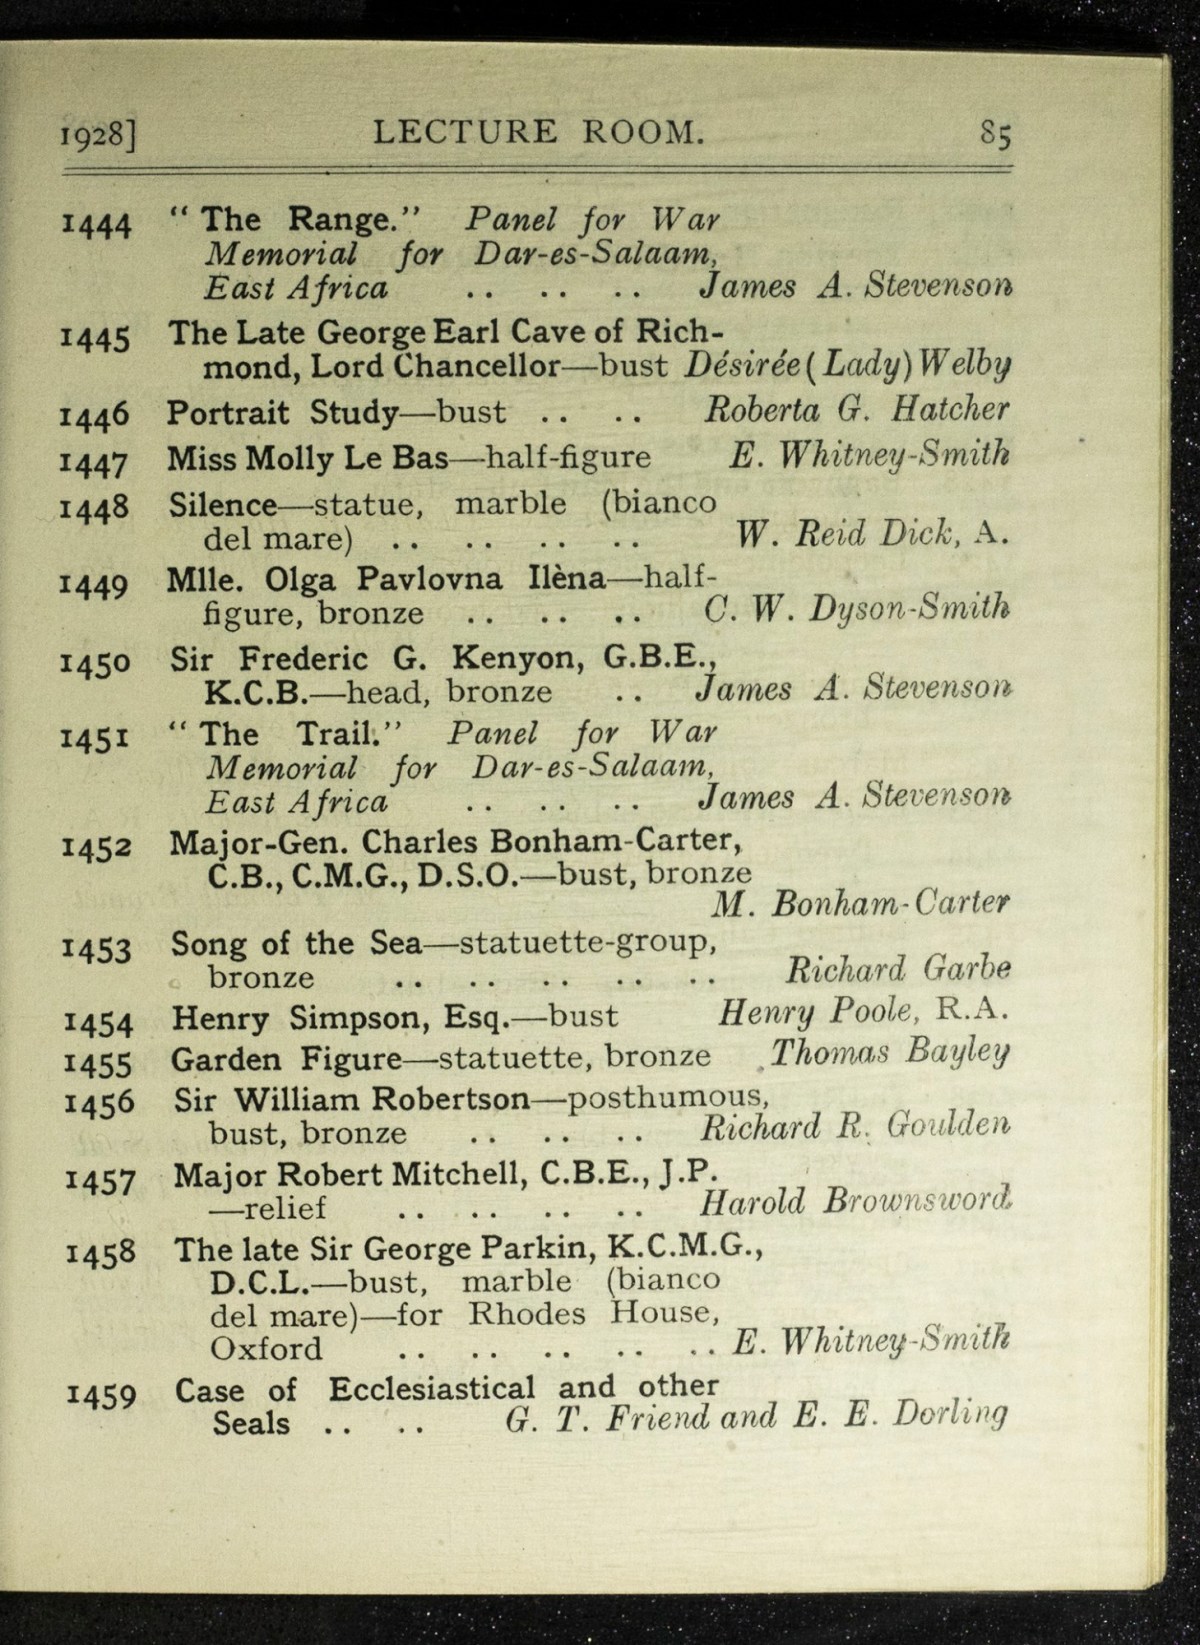 1928] LECTURE ROOM. 85
1444 “ The Range.” Panel for War
Memorial for Dar-es-Salaam,
East Africa .. .. .. James A. Stevenson
1445 The Late George Earl Cave of Rich-
mond, Lord Chancellor—bust Désirée (Lady) Welby
1446 Portrait Study—bust .. .. Roberta G. Hatcher
1447 Miss Molly Le Bas—half-figure E. Whitney-Smith
1448 Silence—statue, marble (bianco
del mare) .. .. .. .. W. Reid Dick, A.
1449 Mlle. Olga Pavlovna Ilèna—half-
figure, bronze .. .. .. C. W. Dyson-Smith
1450 Sir Frederic G. Kenyon, G.B.E.,
K.C.B.—head, bronze .. James A. Stevenson
1451 “ The Trail.” Panel for War
Memorial for Dar-es-Salaam,
East Africa .. .. .. James A. Stevenson
1452 Major-Gen. Charles Bonham-Carter,
C.B., C.M.G., D.S.O.—bust, bronze
M. Bonham-Carter
1453 Song of the Sea—statuette-group,
bronze .. .. .. .. .. Richard Garbe
1454 Henry Simpson, Esq.—bust Henry Poole, R.A.
1455 Garden Figure—statuette, bronze Thomas Bayley
1456 Sir William Robertson—posthumous,
bust, bronze .. .. .. Richard R. Goulden
1457 Major Robert Mitchell, C.B.E., J.P.
—relief .. .. .. .. Harold Brownsword
1458 The late Sir George Parkin, K.C.M.G.,
D.C.L.—bust, marble (bianco
del mare)—for Rhodes House,
Oxford .. .. .. .. .. E. Whitney-Smith
1459 Case of Ecclesiastical and other
Seals .. .. G. T. Friend and E. E. Dorling